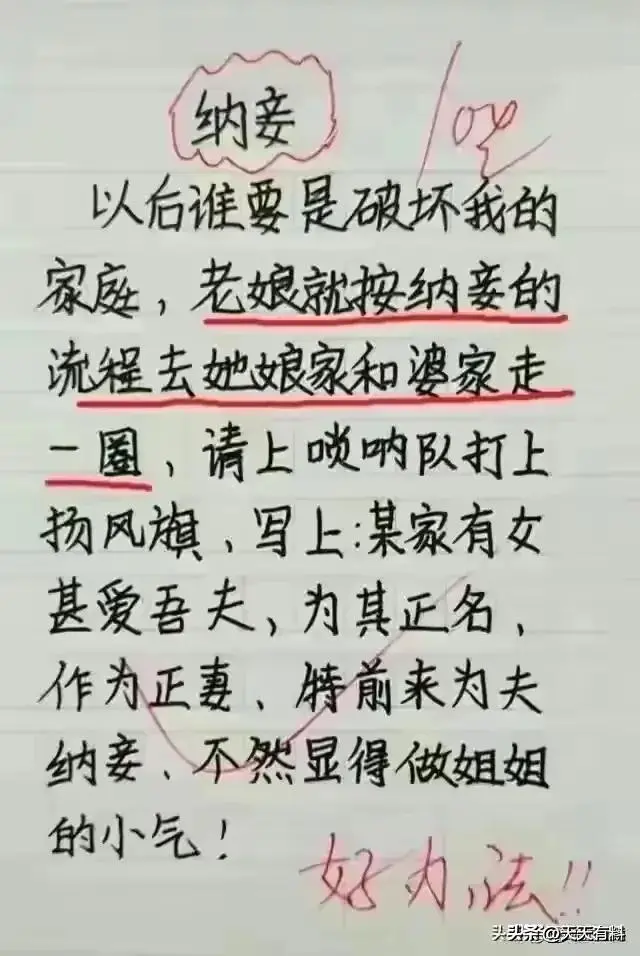 纳妾
100
以后谁要是破坏我的
家庭，老娘就按纳妾的
流程去她娘家和婆家走
一圈，请上唢呐队打上
扬风旗、写上：某家有女
甚爱吾夫，为其正名，
作为正妻、特前来为夫
纳妾、不然显得做姐姐
的小气！
好办法!!
头条@天天有料